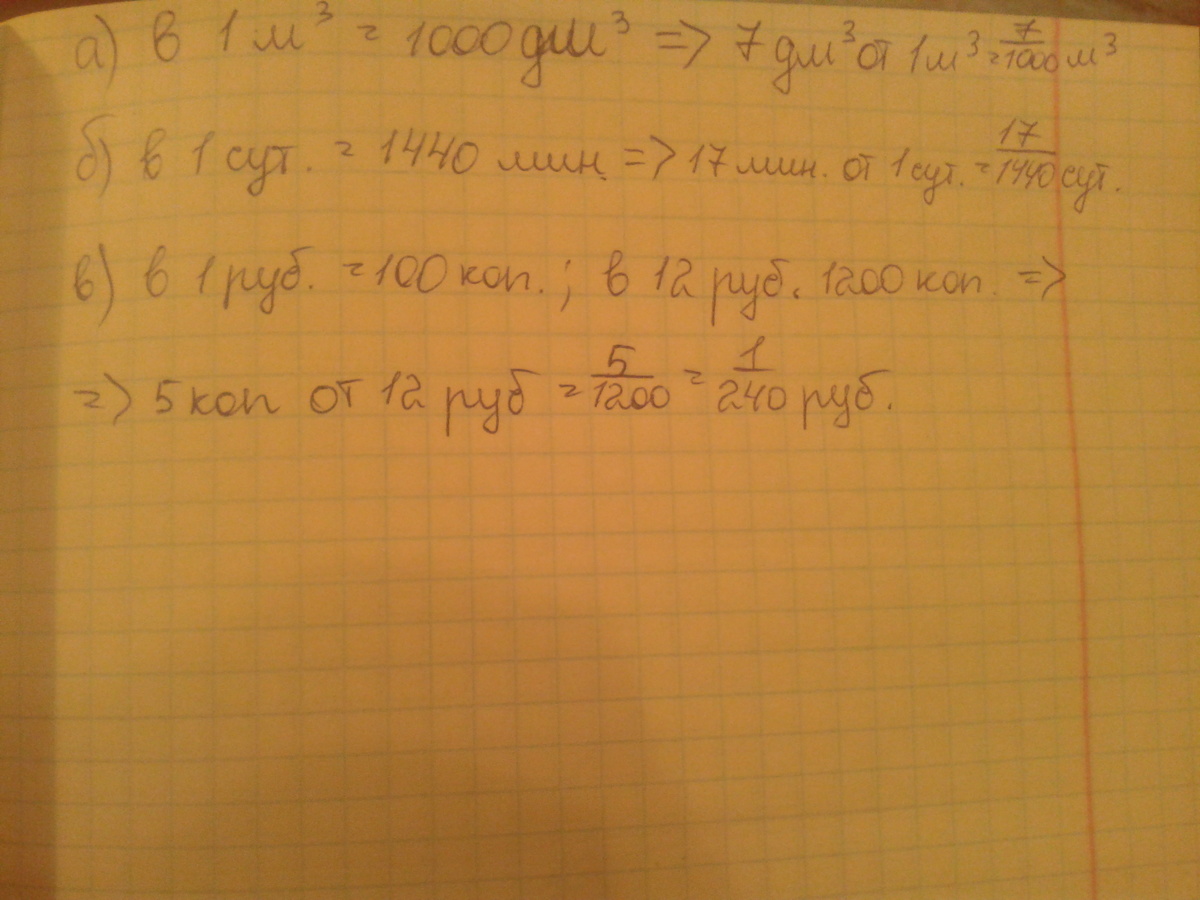 а) в 1 м³ = 1000 дм³ => 7 дм³ от 1 м³ = 7/1000 м³
б) в 1 сут. = 1440 мин. => 17 мин. от 1 сут. = 17/1440 сут.
в) в 1 руб. = 100 коп.; в 12 руб. 1200 коп. =>
=> 5 коп от 12 руб = 5/1200 = 1/240 руб.